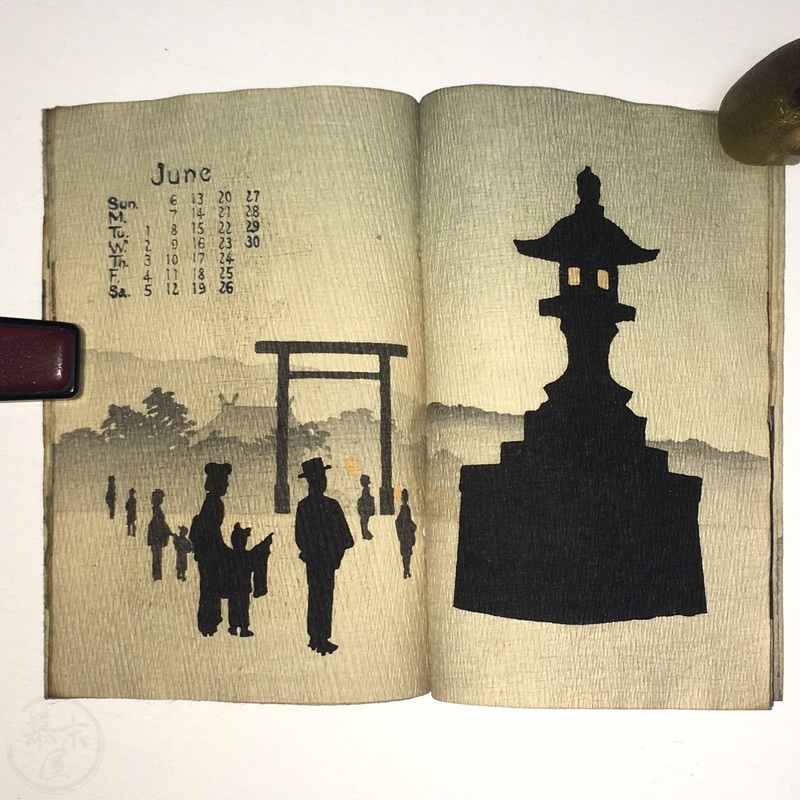 June
Sun. 6 13 20 27
M. 7 14 21 28
Tu. 1 8 15 22 29
W. 2 9 16 23 30
Th. 3 10 17 24
F. 4 11 18 25
Sa. 5 12 19 26
幕末屋